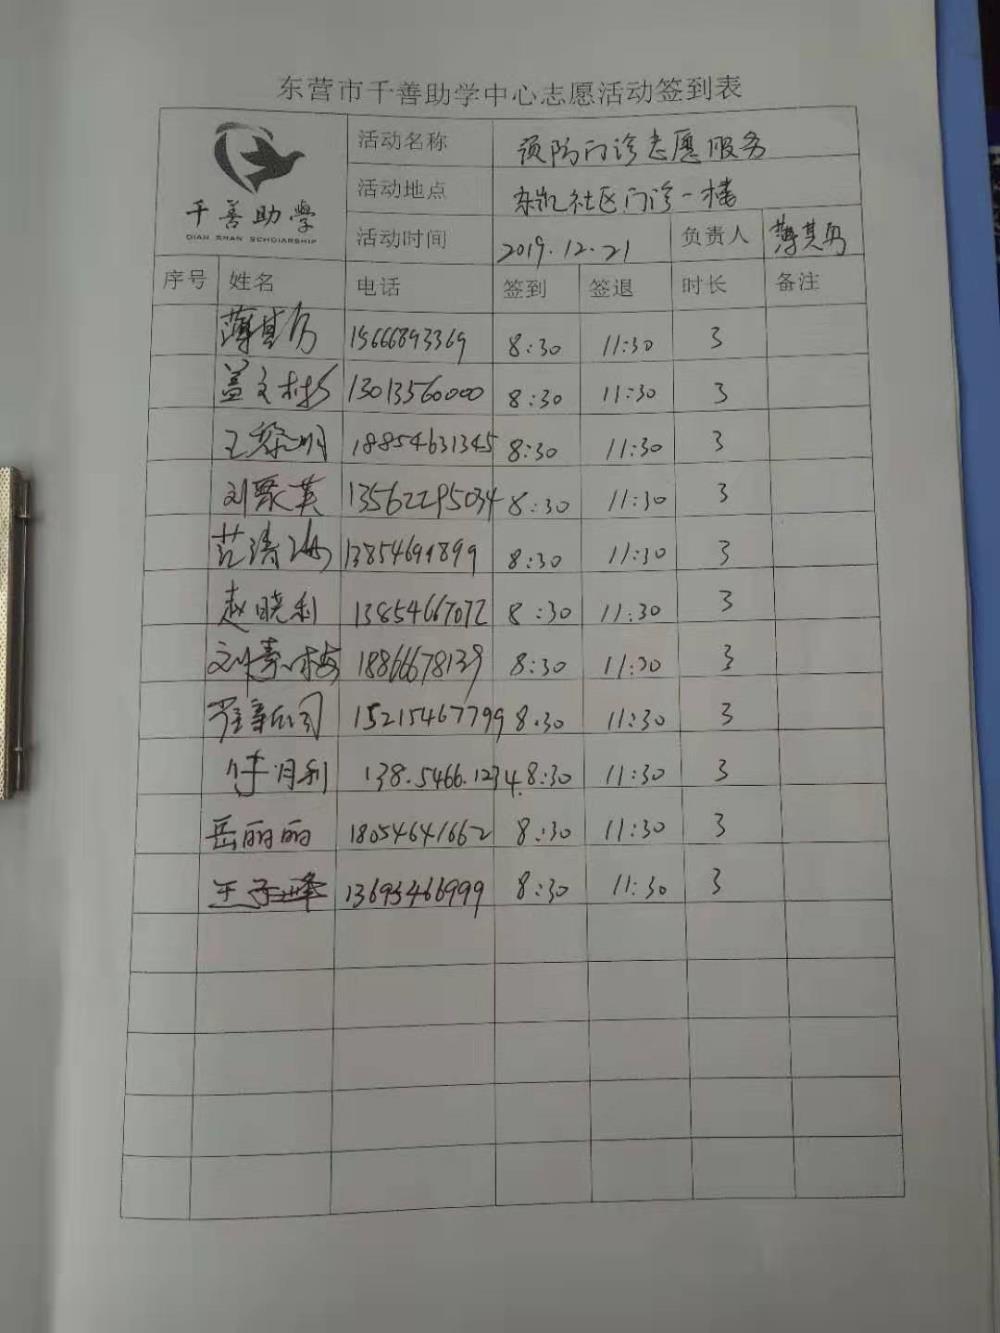 东营市千善助学中心志愿活动签到表
千善助学
QIAN SHAN SCHOLARSHIP
活动名称 预防门诊志愿服务
活动地点 东凯社区门诊一楼
活动时间 2019.12.21 负责人 薄其勇
序号 姓名 电话 签到 签退 时长 备注
薄其勇 15666893369 8:30 11:30 3
盖文彬 13013560000 8:30 11:30 3
王黎明 18854631345 8:30 11:30 3
刘聚英 13562295034 8:30 11:30 3
范涛 8:30 11:30 3
赵晓利 13854667072 8:30 11:30 3
刘春梅 18866678139 8:30 11:30 3
15215467799 8:30 11:30 3
李月利 138.5466.1234. 8:30 11:30 3
岳丽丽 18054641662 8:30 11:30 3
王 13695466999 8:30 11:30 3